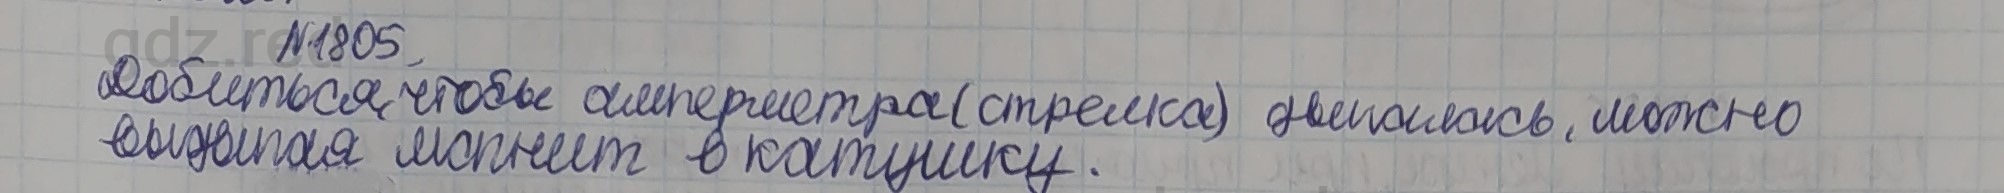 gdz.ru
N1805
Добиться, чтобы амперметра (стрелка) двигалась, можно
выдвигая магнит в катушку.